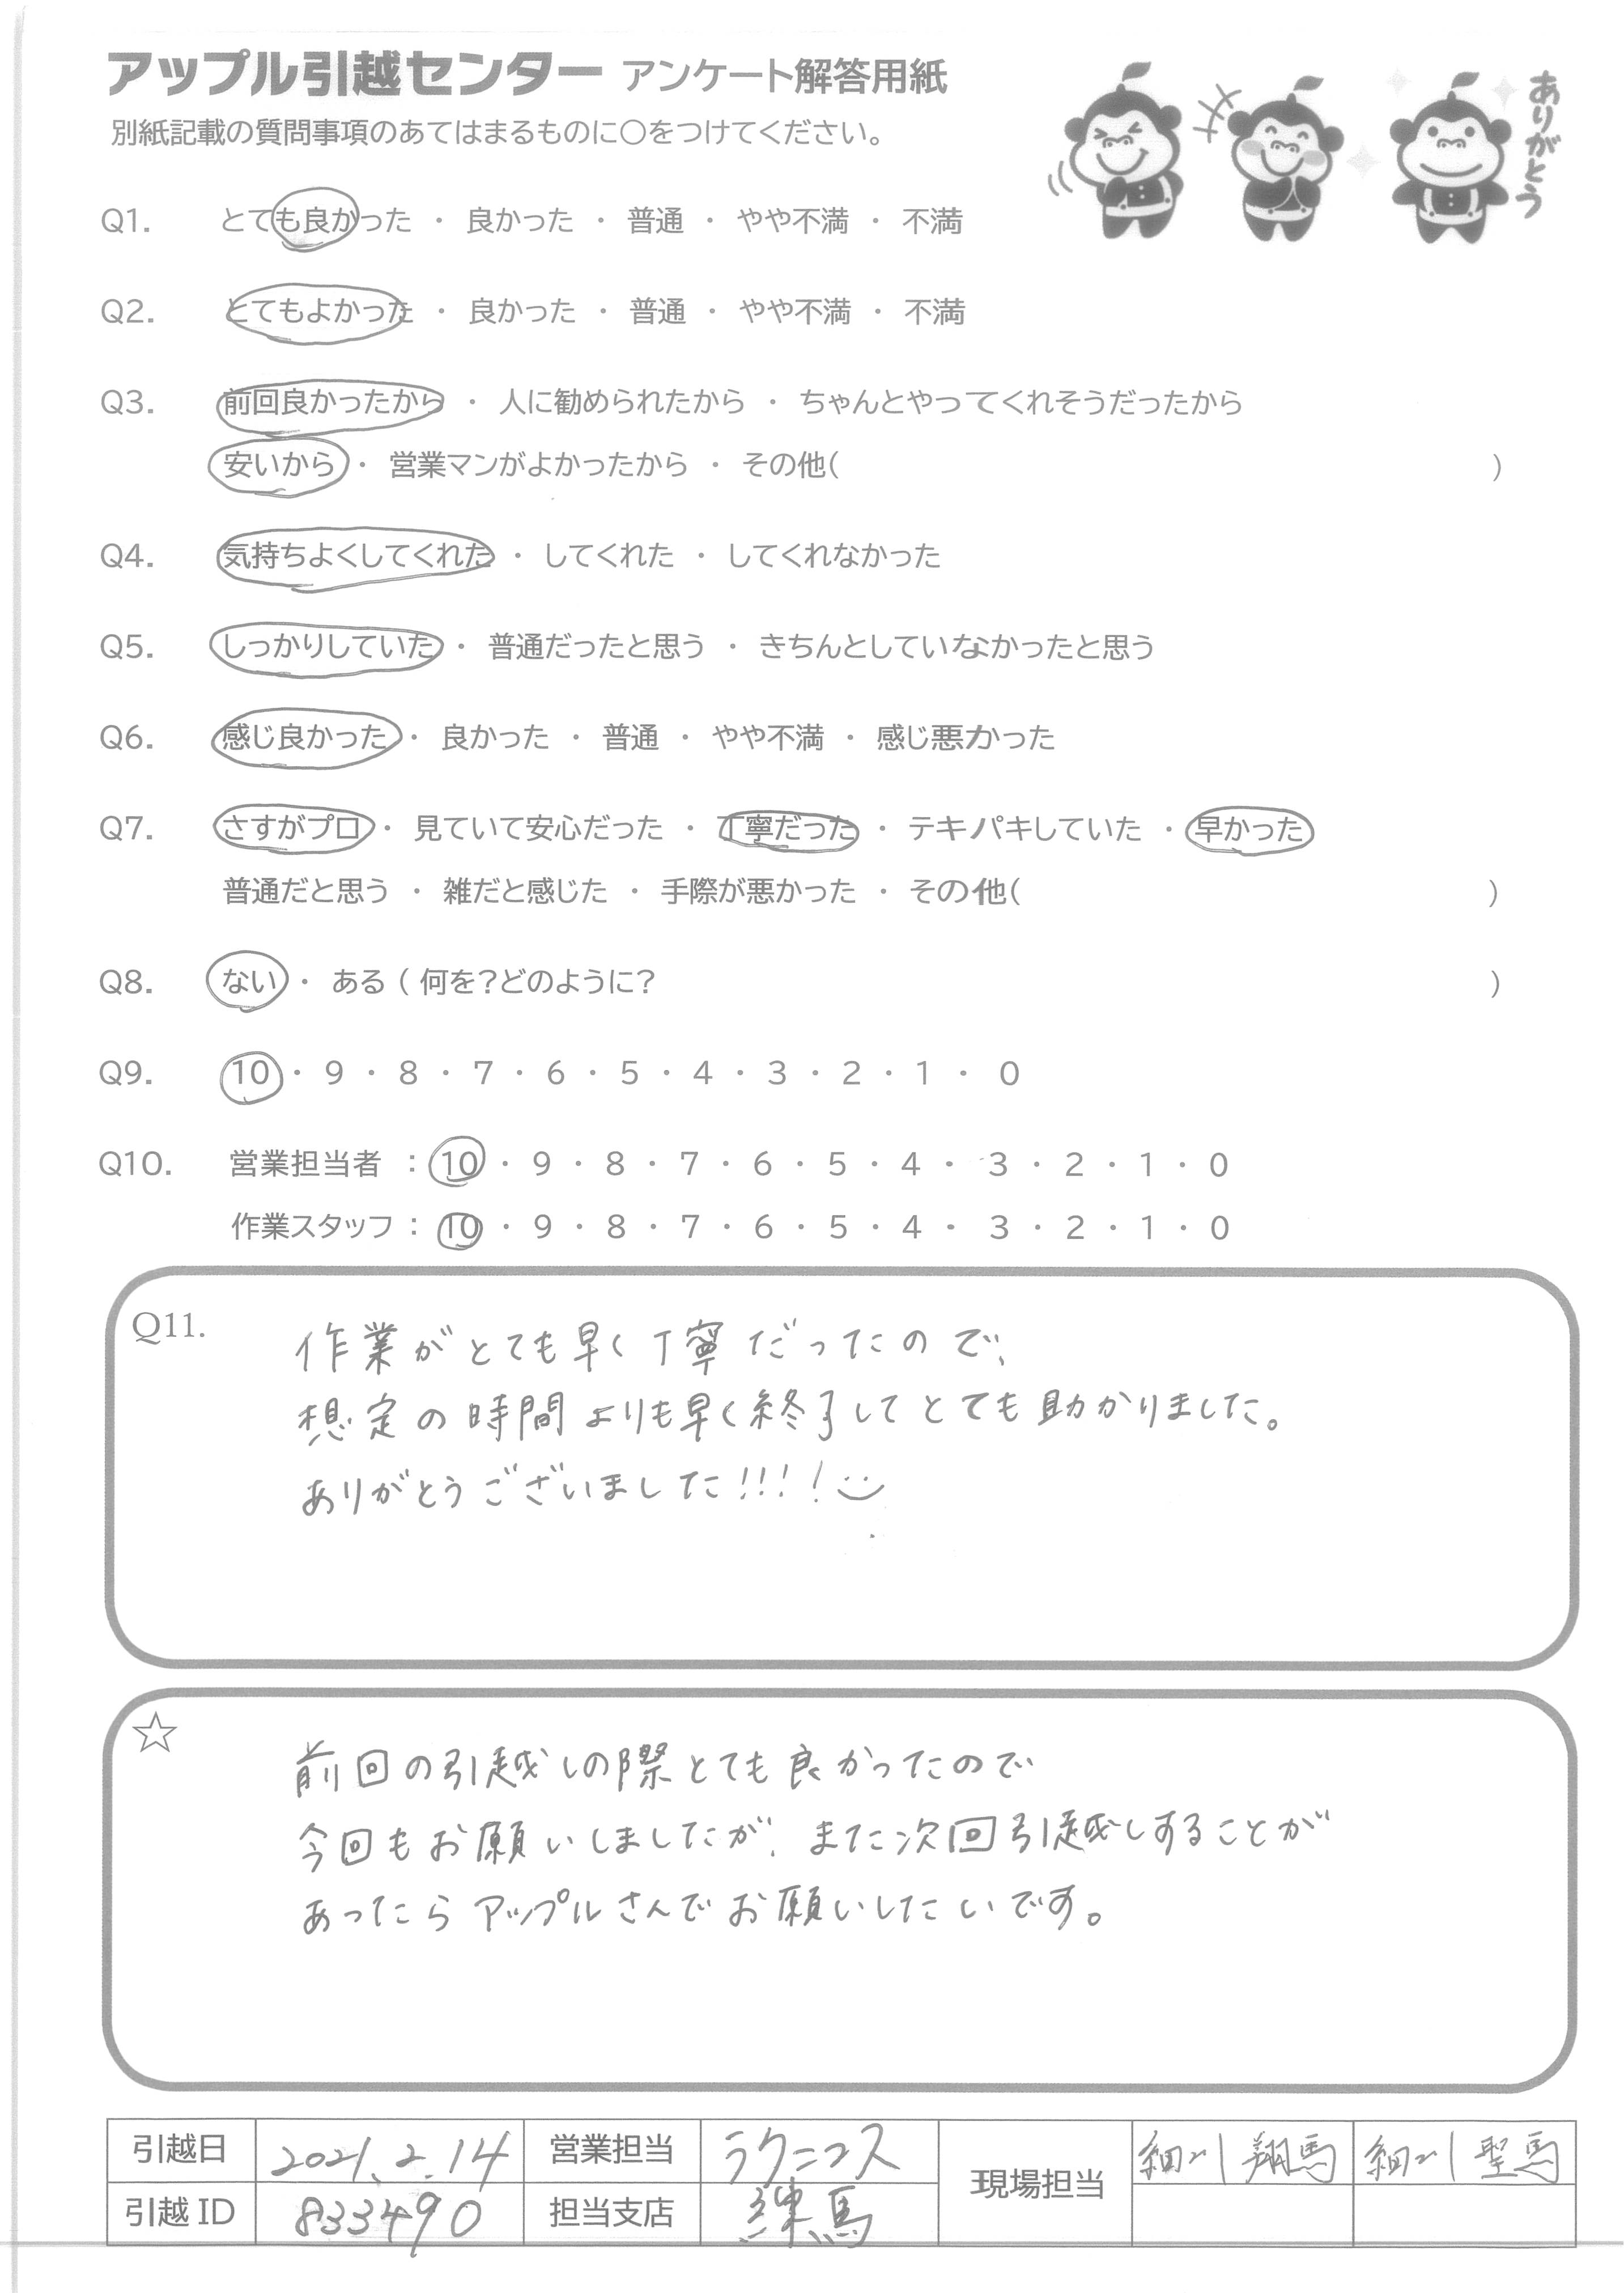 アップル引越センター アンケート解答用紙
別紙記載の質問事項のあてはまるものに○をつけてください。
ありがとう
Q1. とても良かった ・ 良かった ・ 普通 ・ やや不満 ・ 不満
Q2. とてもよかった ・ 良かった ・ 普通 ・ やや不満 ・ 不満
Q3. 前回良かったから ・ 人に勧められたから ・ ちゃんとやってくれそうだったから
安いから ・ 営業マンがよかったから ・ その他( )
Q4. 気持ちよくしてくれた ・ してくれた ・ してくれなかった
Q5. しっかりしていた ・ 普通だったと思う ・ きちんとしていなかったと思う
Q6. 感じ良かった ・ 良かった ・ 普通 ・ やや不満 ・ 感じ悪かった
Q7. さすがプロ ・ 見ていて安心だった ・ 丁寧だった ・ テキパキしていた ・ 早かった
普通だと思う ・ 雑だと感じた ・ 手際が悪かった ・ その他( )
Q8. ない ・ ある ( 何を?どのように? )
Q9. 10 ・ 9 ・ 8 ・ 7 ・ 6 ・ 5 ・ 4 ・ 3 ・ 2 ・ 1 ・ 0
Q10. 営業担当者 : 10 ・ 9 ・ 8 ・ 7 ・ 6 ・ 5 ・ 4 ・ 3 ・ 2 ・ 1 ・ 0
作業スタッフ : 10 ・ 9 ・ 8 ・ 7 ・ 6 ・ 5 ・ 4 ・ 3 ・ 2 ・ 1 ・ 0
Q11.
作業がとても早く丁寧だったので、
想定の時間よりも早く終了してとても助かりました。
ありがとうございました!!!!
☆
前回の引越しの際とても良かったので
今回もお願いしましたが、また次回引越しすることが
あったらアップルさんでお願いしたいです。
引越日 2021.2.14 営業担当 ラクニコス 現場担当 翔馬 聖馬
引越ID 833490 担当支店 練馬